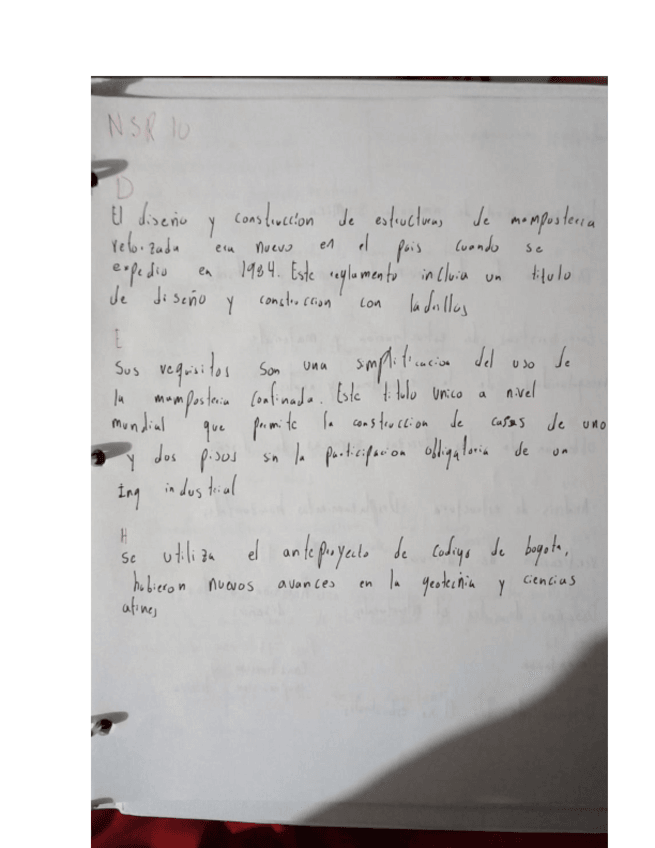 NSR 10
D
El diseño y construccion de estructuras de mamposteria
reforzada era nuevo en el pais cuando se
expedio en 1984. Este reglamento incluia un titulo
de diseño y construccion con ladrillos
E
Sus requisitos son una simplificacion del uso de
la mamposteria confinada. Este titulo unico a nivel
mundial que permite la construccion de casas de uno
y dos pisos sin la participacion obligatoria de un
Ing industrial
H
se utiliza el anteproyecto de codigo de bogota,
hubieron nuevos avances en la geotecnia y ciencias
afines